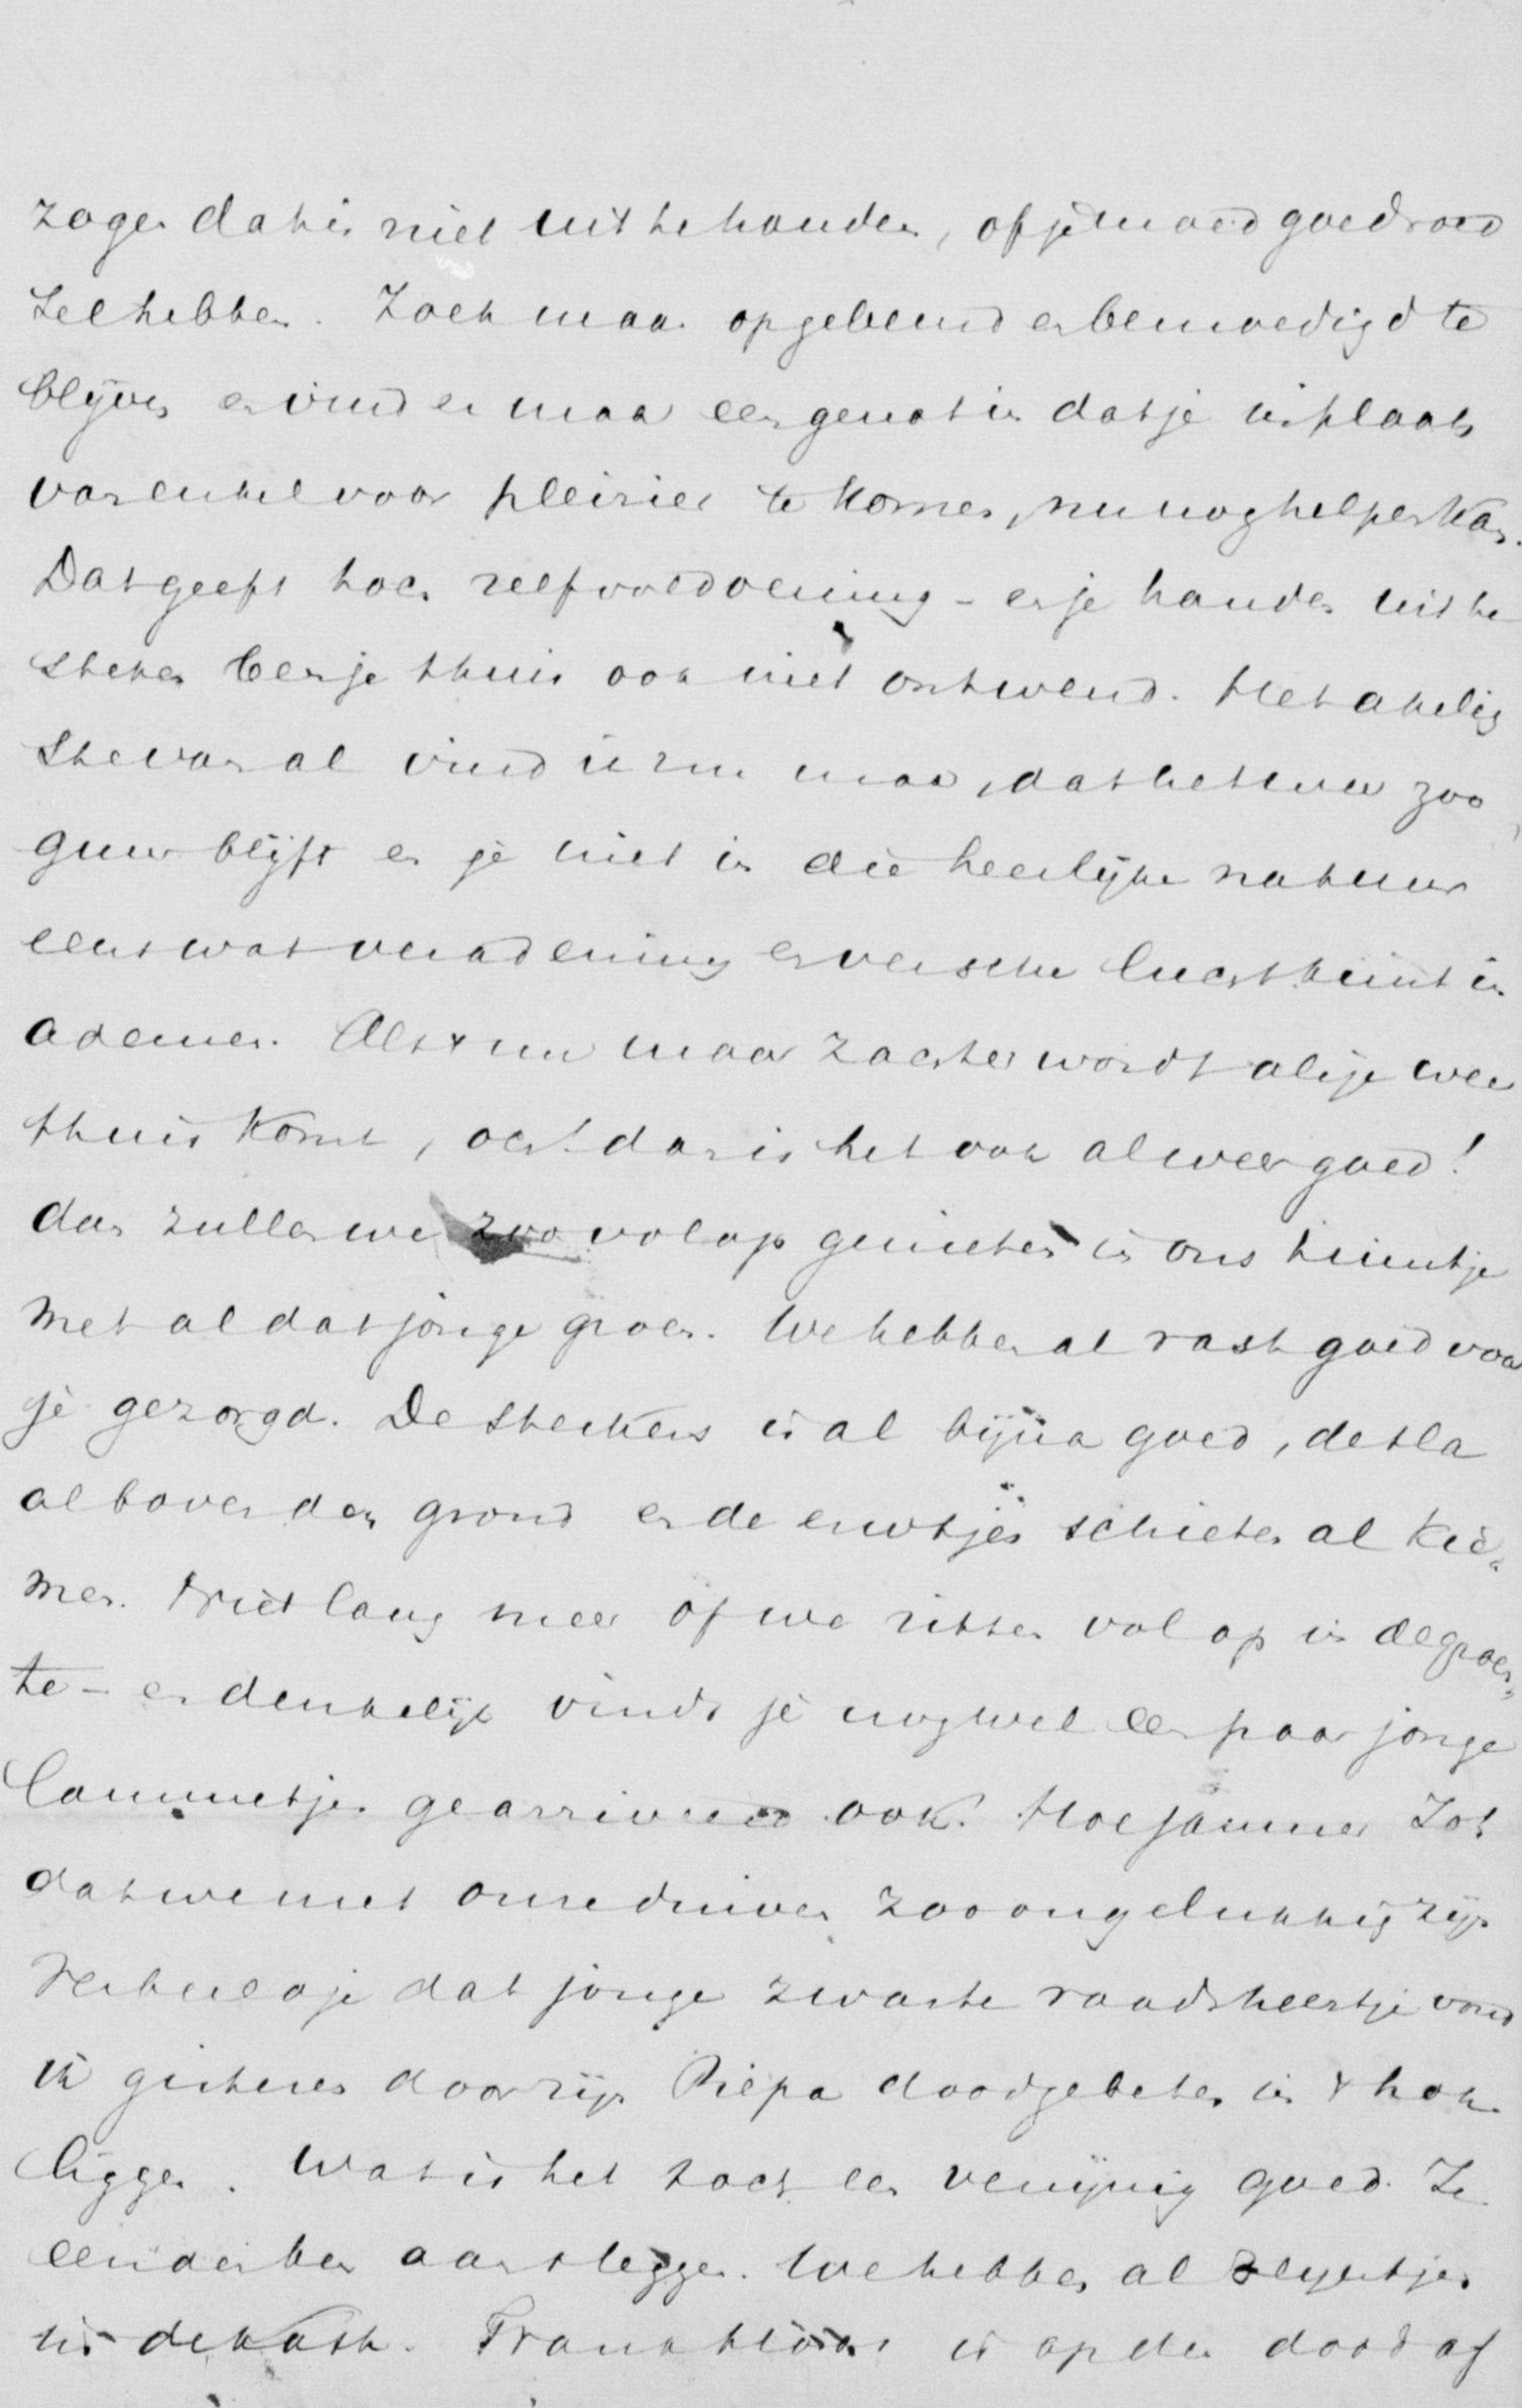 zogen dat is niet uit te houden, of je moed goed rood
zul hebben. Zoek maar opgebeurd en bemoedigd te
blijven en vind er maar een genot in dat je in plaats
van enkel voor pleizier te komen, nu nog helpen kan.
Dat geeft toch zelfvoldoening - en je handen uit te
steken ben je thuis ook niet ontwend. Het akelig
ste van al vind ik nu maar, dat het weer zoo
guur blijft en je niet in die heerlijke natuur
eens wat verademing en versche lucht kunt in
ademen. Als 't nu maar zachter wordt als je weer
thuis komt, och dan is het ook al weer goed!
dan zullen we zoo volop genieten in ons tuintje
met al dat jonge groen. We hebben al vast goed voor
je gezorgd. De sterkers is al bijna goed, de sla
al boven den grond en de erwtjes schieten al kie-
men. Niet lang meer of we zitten vol op in de groen-
te - en denkelijk vindt je nog wel een paar jonge
lammetjes gearriveerd ook. Hoe jammer Zot
dat we met onze duiven zoo ongelukkig zijn
Verbeeld je dat jonge zwarte raadsheertje vond
ik gisteren door zijn Piepa doodgebeten in 't hok
liggen. Wat is het toch een venijnig goed. Ze
eenden ben aan 't leggen. We hebben al eijertjes
in de kast. is op den dood af